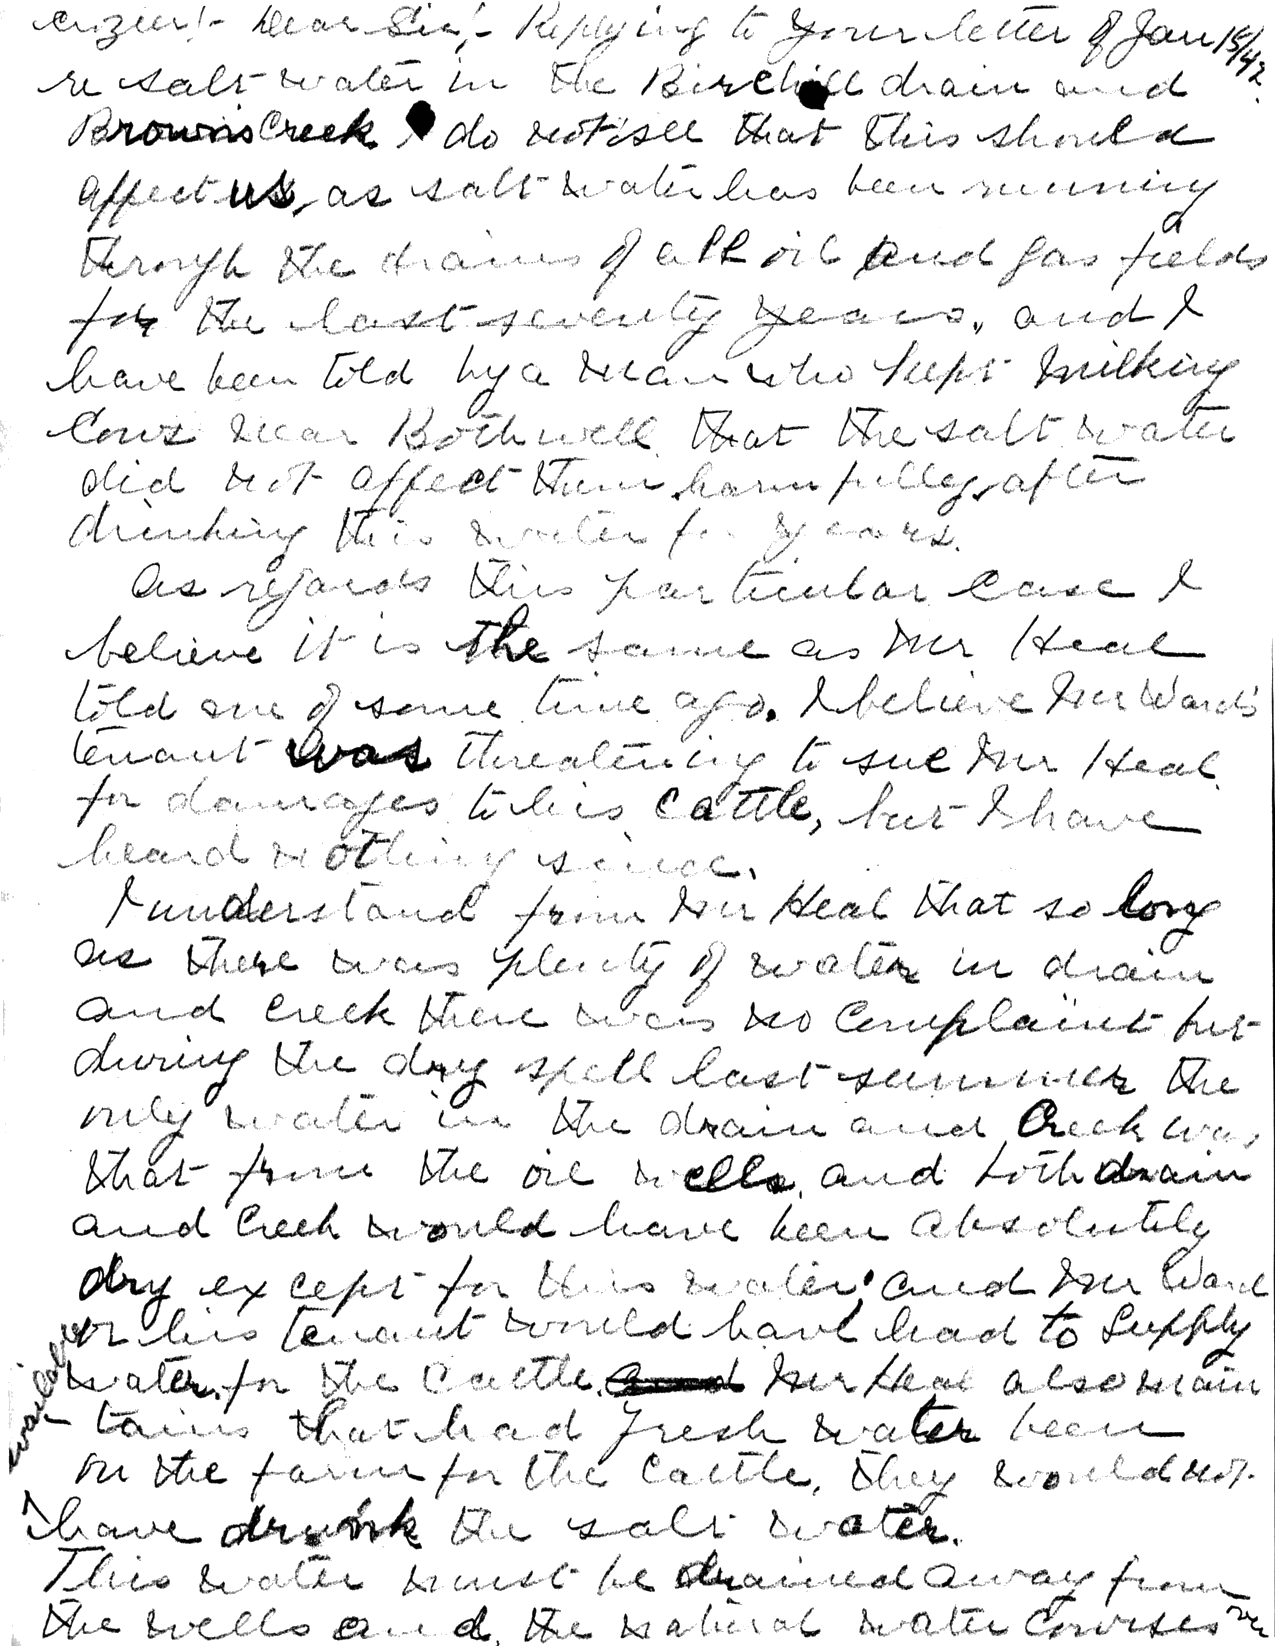 Crozier:- Dear Sir:- Replying to your letter of Jan 15/42.
re salt water in the Birchill drain and
Browns Creek I do not see that this should
affect us, as salt water has been running
through the drains of all oil and gas fields
for the last seventy years, and I
have been told by a man who keeps milking
cows near Bothwell that the salt water
did not affect them harmfully, after
drinking this water for years.
As regards this particular case I
believe it is the same as Mr Heal
told me of some time ago. I believe Mr Ward's
tenant was threatening to sue Mr Heal
for damages to his cattle, but I have
heard nothing since.
I understand from Mr Heal that so long
as there was plenty of water in drain
and creek there was no complaint but
during the dry spell last summer the
only water in the drain and Creek was
that from the oil wells, and both drain
and Creek would have been absolutely
dry except for this water, and Mr Ward
or his tenant would have had to supply
water for the Cattle. and Mr Heal also main
- tains that had fresh water been
available
on the farm for the Cattle, they would not
have drunk the salt water.
This water must be drained away from
the wells and, the natural water courses